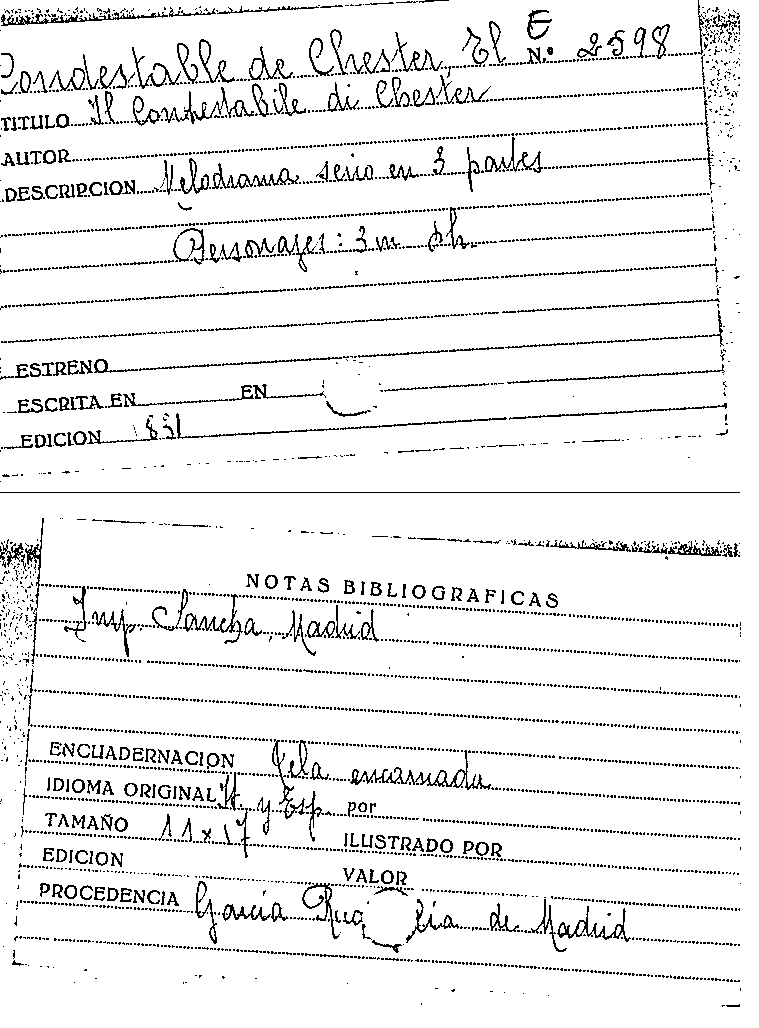 Condestable de Chester, El E N.º 2598
TITULO Il Contestabile di Chester
AUTOR
DESCRIPCION Melodrama serio en 3 partes
Personajes: 3 m
ESTRENO
ESCRITA EN EN
EDICION 1831
NOTAS BIBLIOGRAFICAS
Imp. Sancha, Madrid
ENCUADERNACION Tela encarnada
IDIOMA ORIGINAL It. y Esp. por
TAMAÑO 11x17 ILUSTRADO POR
EDICION VALOR
PROCEDENCIA García de Madrid